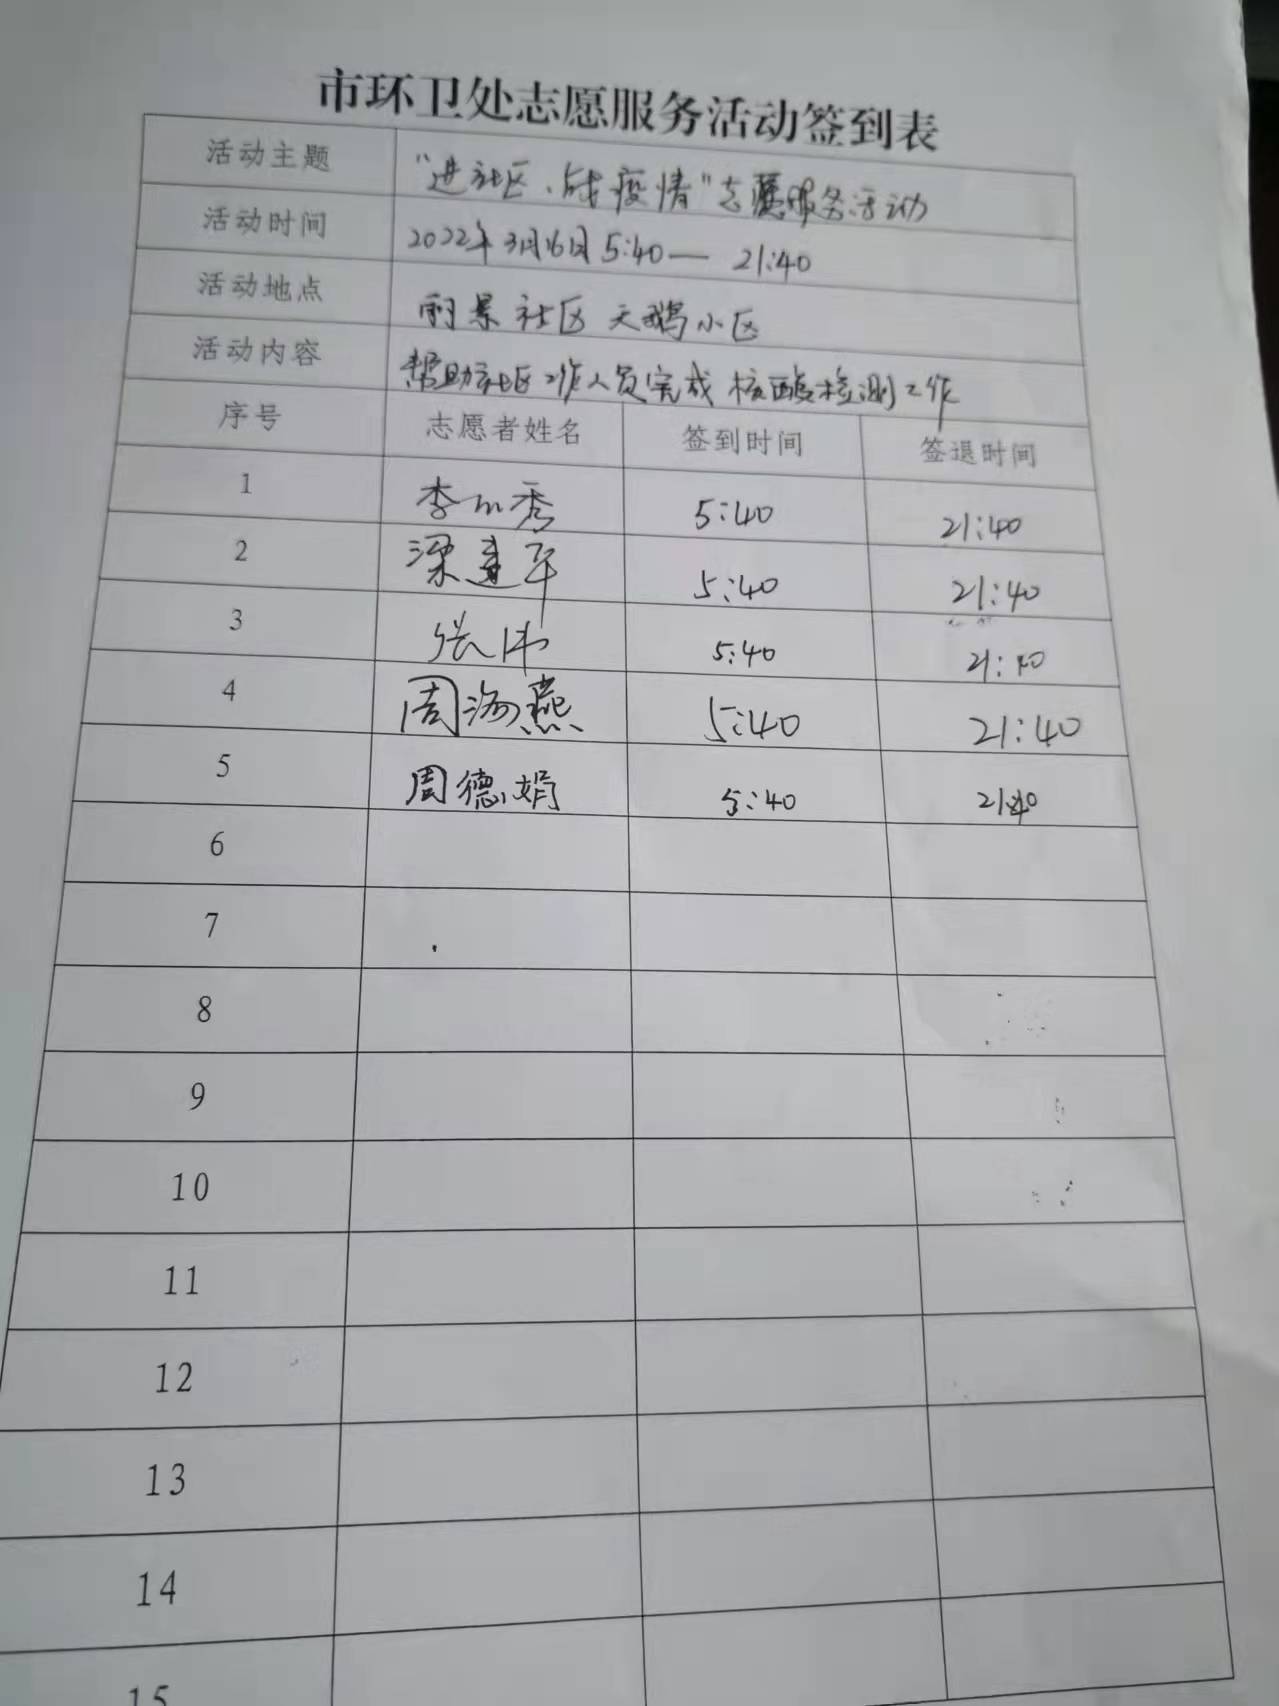 市环卫处志愿服务活动签到表
活动主题 “进社区、战疫情”志愿服务活动
活动时间 2022年3月16日 5:40— 21:40
活动地点 丽景社区 天鹅小区
活动内容 帮助社区工作人员完成核酸检测工作
序号 志愿者姓名 签到时间 签退时间
1 李 秀 5:40 21:40
2 梁建军 5:40 21:40
3 张伟 5:40 21:40
4 周海燕 5:40 21:40
5 周德娟 5:40 21:40
6
7
8
9
10
11
12
13
14
15